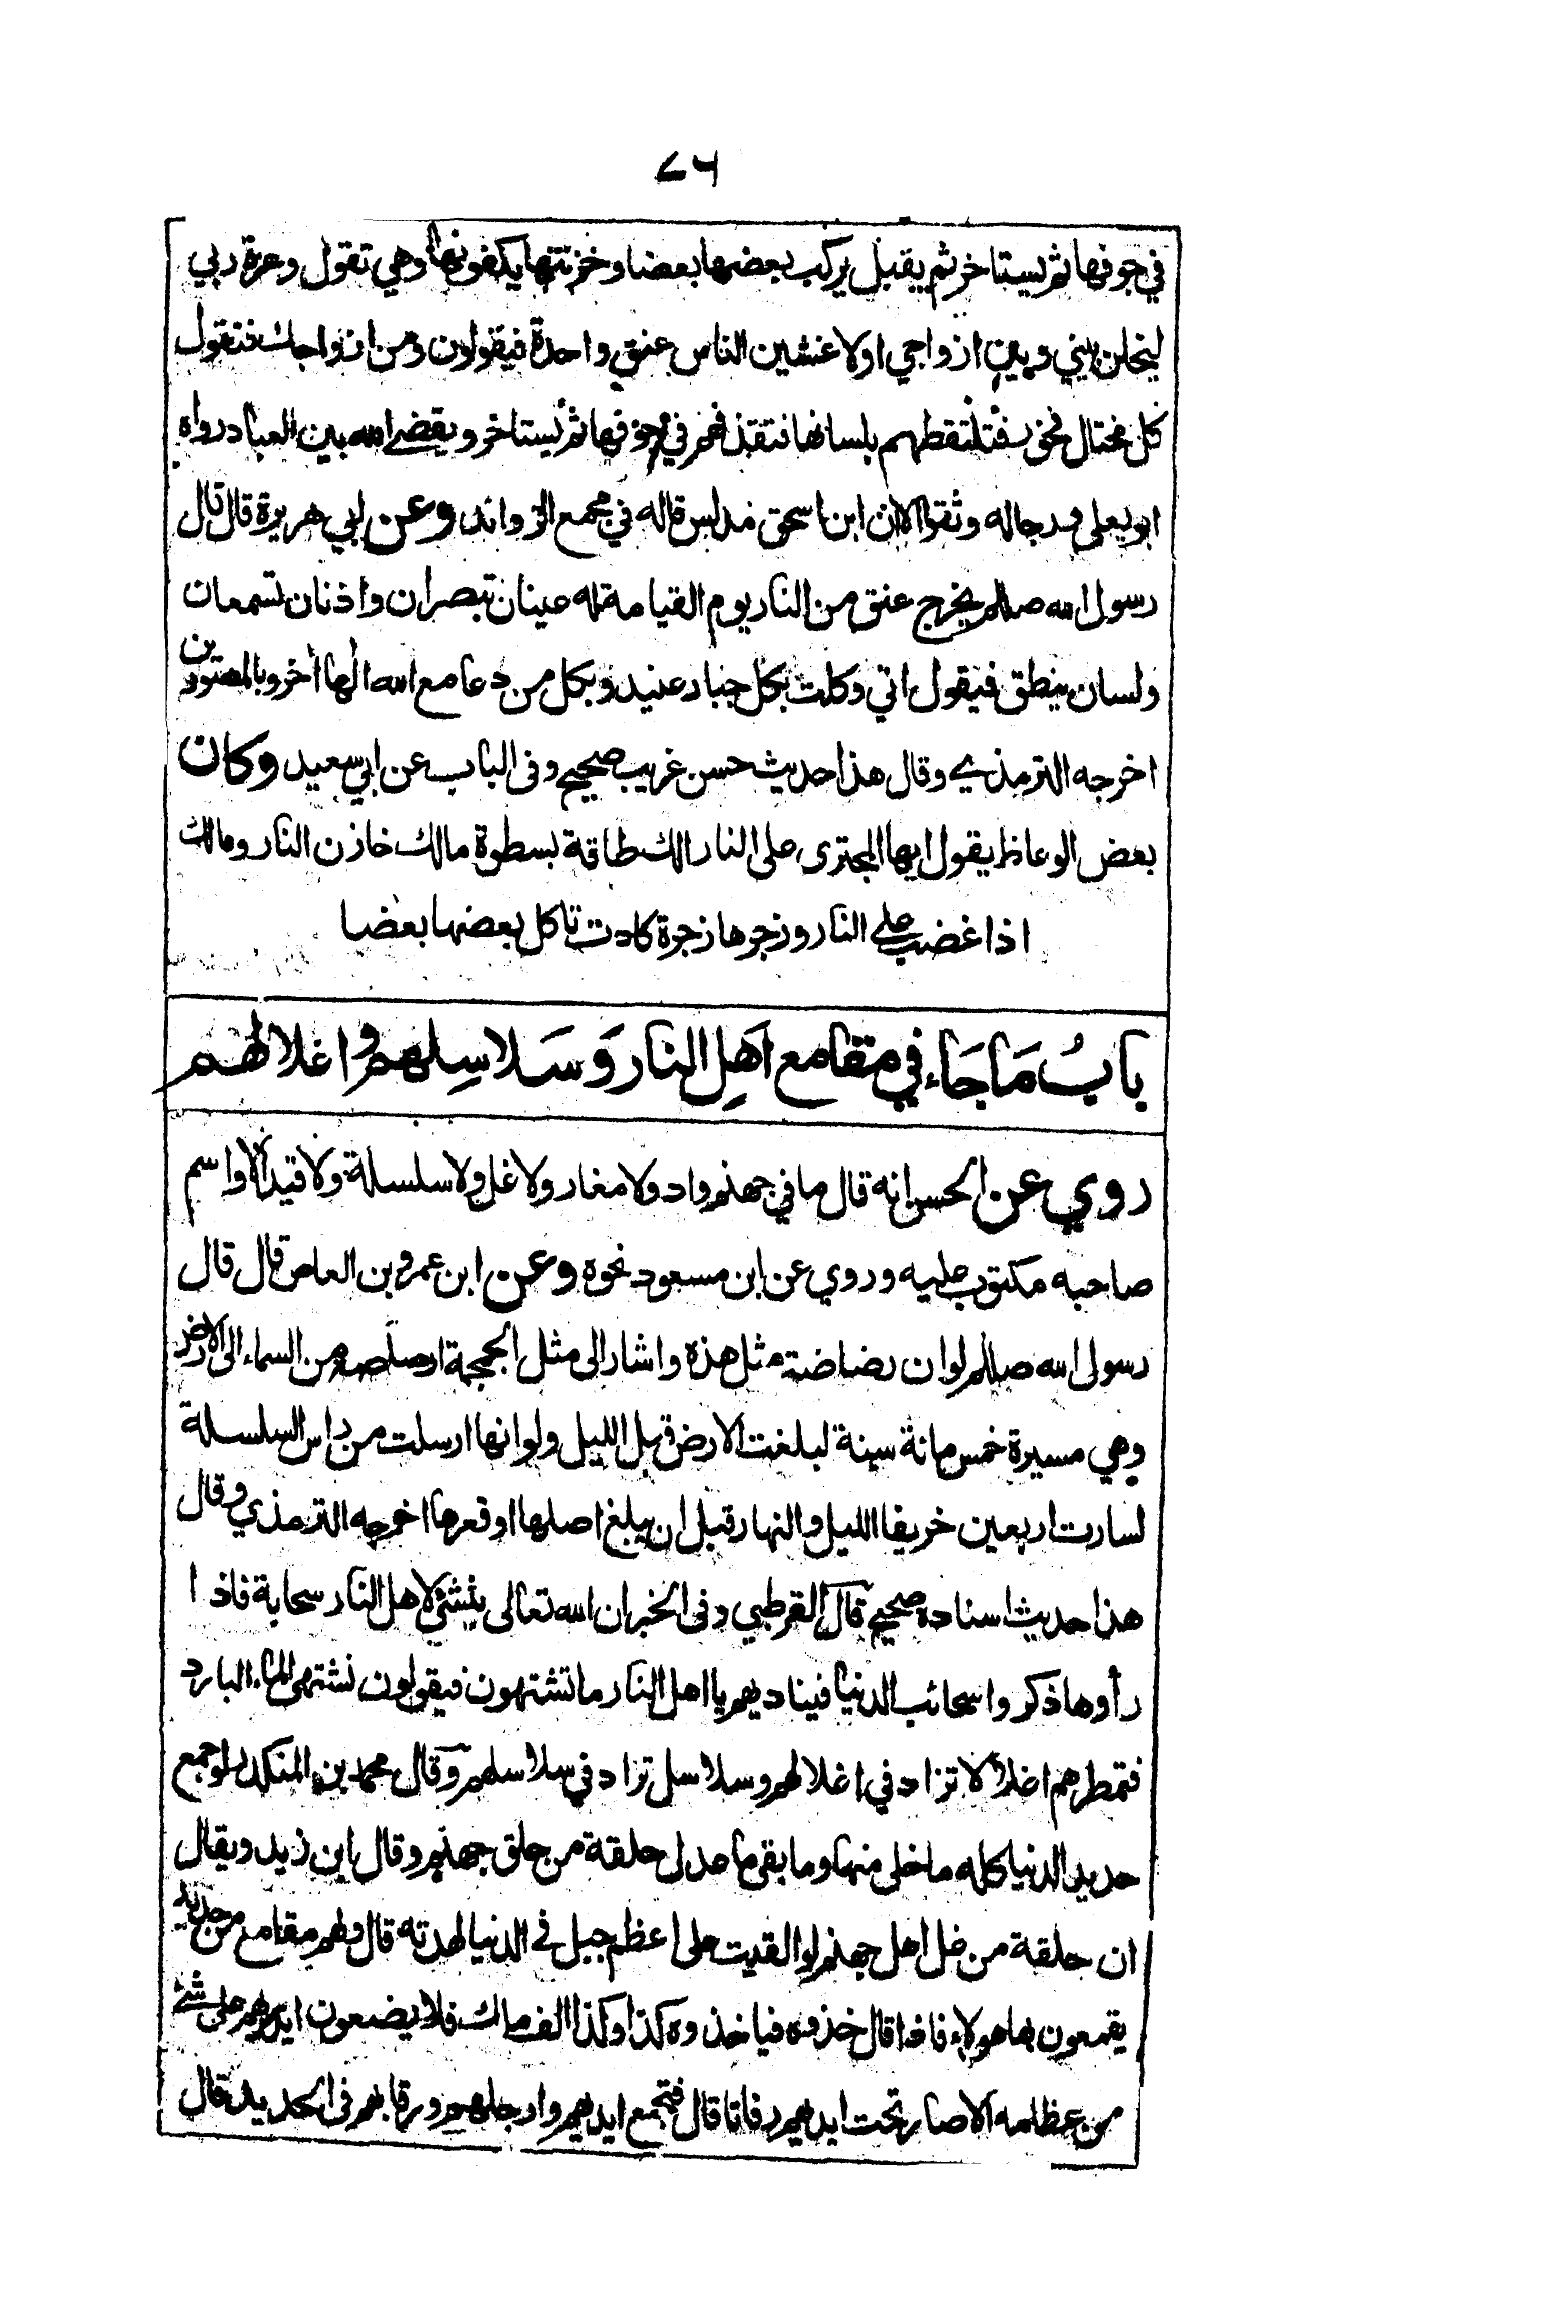 ٤٦
في جوفها ثم يستاخر ثم يقبل يركب بعضها بعضا وخزنتها يكفونها وهي تقول وعزة ربي
ليخلن بيني وبين ازواجي اولاغشين الناس عنق واحدة فيقولون ومن ازواجك فتقول
كل مختال فخور فتلتقطهم بلسانها فتقذفهم في جوفها ثم يستاخر ويقضي الله بين العباد رواه
ابو يعلى ورجاله وثقوا الا ان ابن اسحق مدلس قاله في مجمع الزوائد وعن ابي هريرة قال قال
رسول الله صللم يخرج عنق من النار يوم القيامة له عينان تبصران واذنان تسمعان
ولسان ينطق فيقول اني وكلت بكل جبار عنيد وبكل من دعا مع الله الها اخر وبالمصورين
اخرجه الترمذي وقال هذا حديث حسن غريب صحيح وفى الباب عن ابي سعيد وكان
بعض الوعاظ يقول ايها المجترى على النار الك طاقة بسطوة مالك خازن النار ومالك
اذا غضب على النار وزجرها زجرة كادت تاكل بعضها بعضا
بابُ مَا جَاء في مقامع اَهلِ النار وَسَلاسِلهم واغلالهم
روي عن الحسن انه قال ما في جهنم واد ولا مغار ولا غل ولا سلسلة ولا قيد الا واسم
صاحبه مكتوب عليه وروي عن ابن مسعود نحوه وعن ابن عمرو بن العاص قال قال
رسول الله صللم لو ان رضاضة مثل هذه واشار الى مثل الجمجمة ارسلت من السماء الى الارض
وهي مسيرة خمس مائة سنة لبلغت الارض قبل الليل ولو انها ارسلت من راس السلسلة
لسارت اربعين خريفا الليل والنهار قبل ان يبلغ اصلها او قعرها اخرجه الترمذي وقال
هذا حديث اسناده صحيح قال القرطبي وفى الخبر ان الله تعالى ينشئ لاهل النار سحابة فاذا
رأوها ذكروا سحائب الدنيا فيناديهم يا اهل النار ما تشتهون فيقولون نشتهى الماء البارد
فتمطرهم اغلالا تزاد في اغلالهم وسلاسل تزاد في سلاسلهم وقال محمد بن المنكدر لو جمع
حديد الدنيا كله ما خلى منها وما بقى ما عدل حلقة من حلق جهنم وقال ابن زيد ويقال
ان حلقة من غل اهل جهنم لو القيت على اعظم جبل في الدنيا لهدته قال ولهم مقامع من حديد
يقمعون بها هولاء فاذا قال خذوه فياخذوه كذا وكذا الف ملك فلا يضعون ايديهم على شئ
من عظامه الا صار تحت ايديهم رفاتا قال فتجمع ايديهم وارجلهم ورقابهم فى الحديد قال